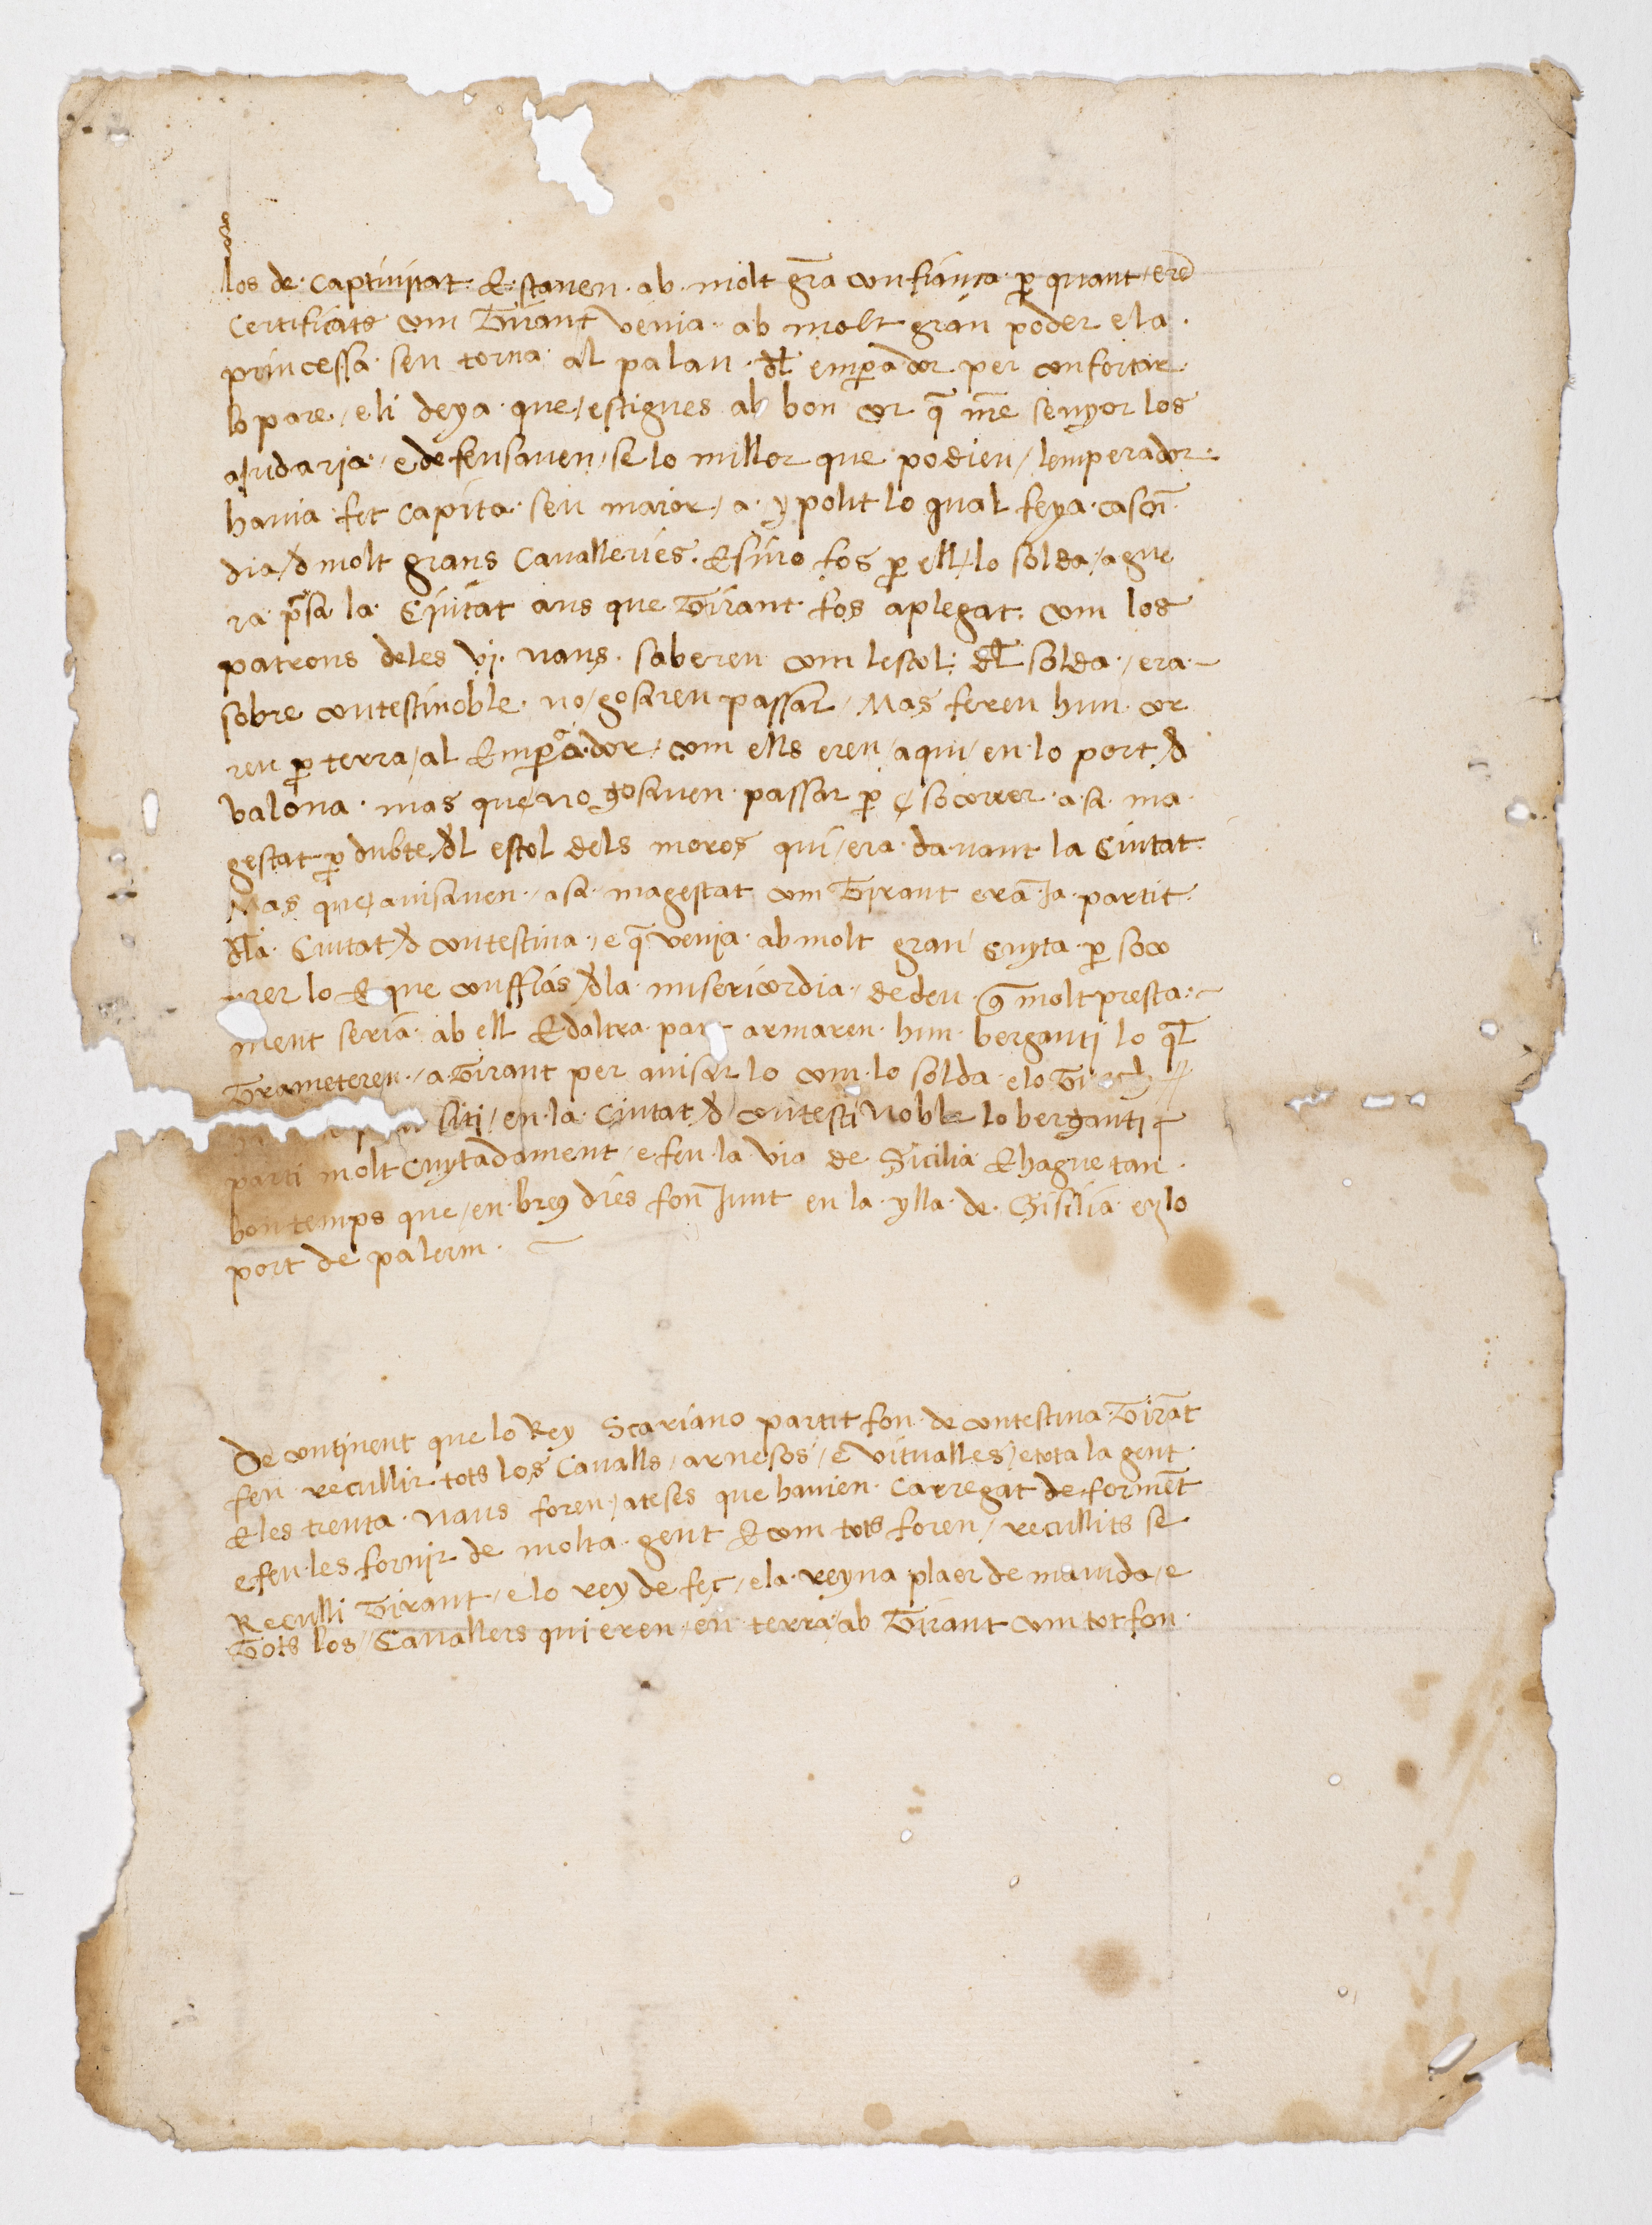 los de · captiuitat · E · stauen · ab · molt grã confiança · ꝑ quant / erẽ
certificats com Tirant venia · ab molt gran poder e la ·
princessa · sen torna · al palau · dl̃ emꝑador per confortar ·
lo pare · / e li deya · que / estigues ab bon cor q̃ nr̃e senyor los
aiudaria · / e defensauen / se lo millor que podien / lemperador ·
hauia · fet capita · seu maior / a · ypolit lo qual feya · cascũ
dia / d molt grans caualleries · E sino fos ꝑ ell / lo solda / ague
ra p̃sa la · Ciutat ans que Tirant · fos aplegat · com los
patrons deles vj · naus · saberen com lestol · dl̃ solda · / era ~
sobre contestinoble · no / gosaren passar / Mas feren hun cor
reu ꝑ terra / al Emꝑador / com ells eren / aqui / en · lo port / d
valona · mas que / no gosauen · passar ꝑ socorrer · a · sa · ma ·
gestat ꝑ dubte / dl estol dels moros qui / era · dauant la Ciutat
Mas que / auisauen · / a sa · magestat com Tirant era Ja · partit ·
dl̃a · Ciutat / d contestina · / e q̃ venia · ab molt gran cuyta · ꝑ soco
rrer lo E que conffias / dla · misericordia · dedeu · q̃ molt presta · ~
ment seria · ab ell E daltra · part armaren · hun · berganti lo ql̃
Trameteren · / a Tirant per auisar lo com · lo solda · e lo
siti / en · la · Ciutat / d contesti Noble lo berganti
parti molt cuytadament / e feu · la via de Sicilia E hague tan ·
bon temps que / en · breu dies fon Junt en la · ylla · de · Sisilia · en lo
port de palerm ·
De continent que lo Rey Scariano partit fon · de contestina · Tirãt
feu recullir · tots los caualls / arnesos / e vitualles / e tota la gent ·
E les trenta · naus foren / ateses que hauien · carregat de formẽt
e feu · les fornir de molta · gent E com tots foren / recullits se
Reculli Tirant · / e lo rey de feç / e la · reyna plaer de mauida / e
Tots los / Cauallers qui eren / en terra / ab Tirant com tot fon ·